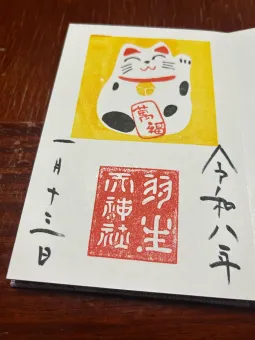 萬福
令和八年
羽生
天神社
一月十三日